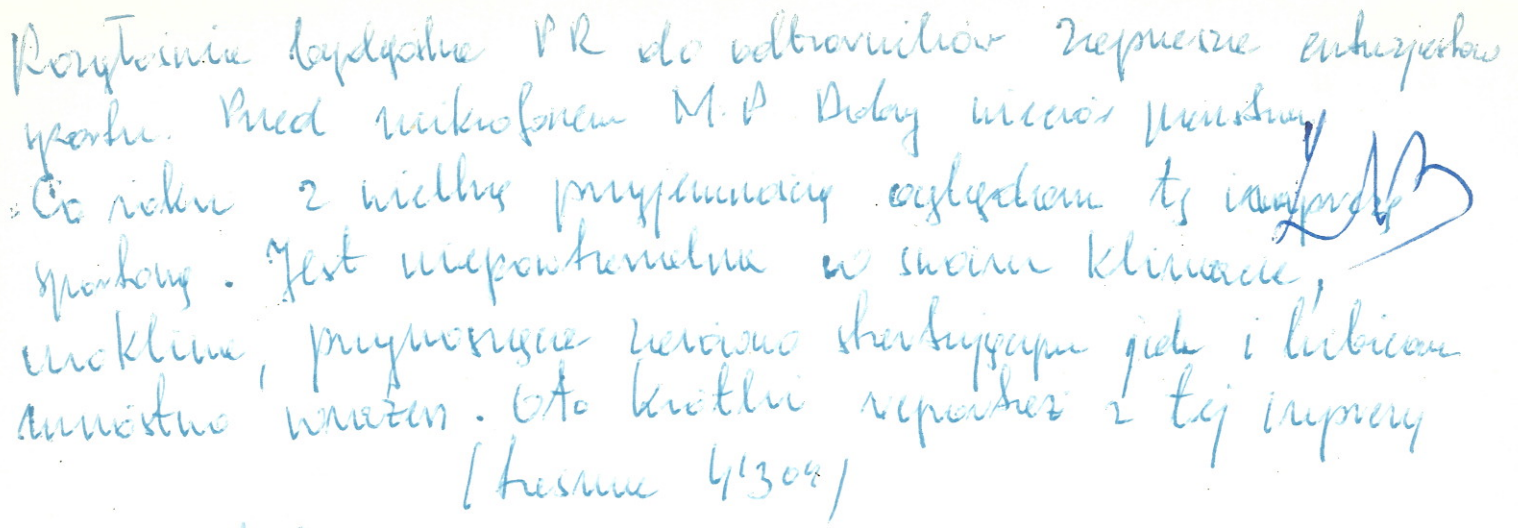 Rozgłośnia bydgoska PR do odbiorników zaprasza entuzjastów
sportu. Przed mikrofonem M.P. Dobry wieczór państwu
Co roku z wielką przyjemnością oglądam tę imprezę
sportową. Jest niepowtarzalna w swoim klimacie,
urokliwa, przynosząca zarówno startującym jak i kibicom
mnóstwo wrażeń. Oto krótki reportaż z tej imprezy
(taśma 4'30")